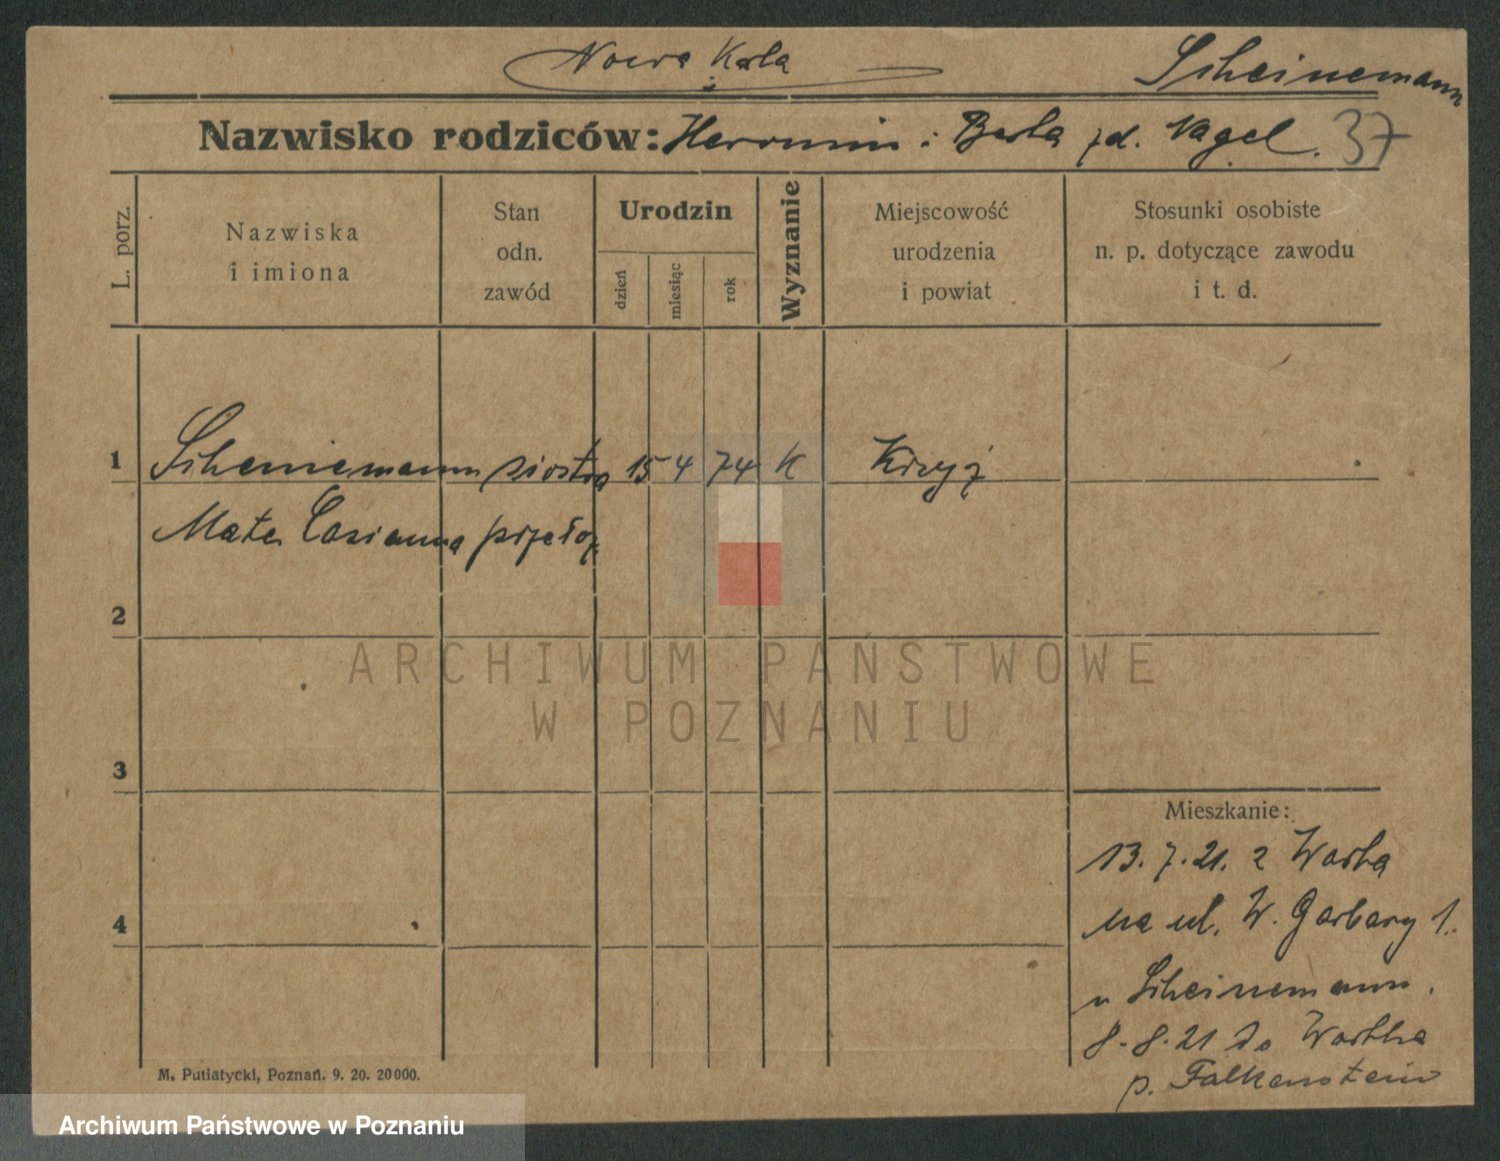 Nowa Karta
Scheinemann
Nazwisko rodziców: Hermann i Berta zd. Nagel. 37
L. porz.
Nazwiska
i imiona
Stan
odn.
zawód
Urodzin
dzień
miesiąc
rok
Wyznanie
Miejscowość
urodzenia
i powiat
Stosunki osobiste
n. p. dotyczące zawodu
i t. d.
1 Scheinemann siostra 15 4 74 K Krzyż
Mate przeł
2
ARCHIWUM PAŃSTWOWE
W POZNANIU
3
Mieszkanie:
13.7.21. z Wartha
4
na ul. W. Garbary 1.
u Scheinemann.
8.8.21 do Wartha
p. Falkenstein
M. Putiatycki, Poznań. 9. 20. 20000.
Archiwum Państwowe w Poznaniu